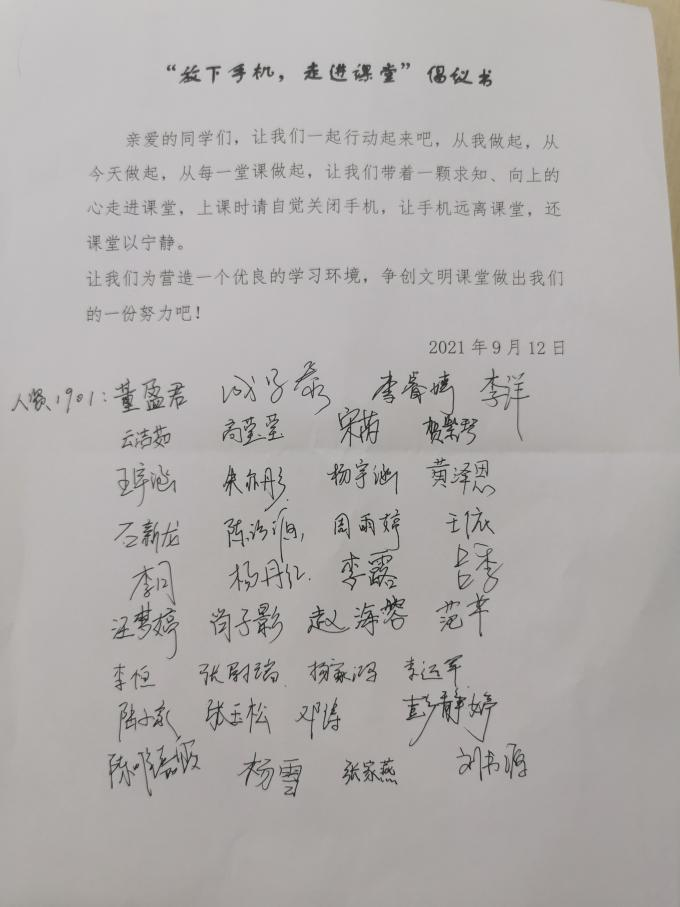 “放下手机，走进课堂”倡议书
亲爱的同学们，让我们一起行动起来吧，从我做起，从
今天做起，从每一堂课做起，让我们带着一颗求知、向上的
心走进课堂，上课时请自觉关闭手机，让手机远离课堂，还
课堂以宁静。
让我们为营造一个优良的学习环境，争创文明课堂做出我们
的一份努力吧！
2021年9月12日
人资1901：董盈君 李睿婧 李洋
云洁茹 高莹莹 宋芮 贺紫琴
王宇涵 朱亦彤 杨宇涵 黄泽恩
石新龙 周雨婷 王依
杨丹红 李露 占季
汪梦婷 尚子影 赵海蓉 范苹
李恒 张尉瑞 杨家鸿 李运军
张玉松 邓涛 彭静婷
杨雪 张家燕 刘书源